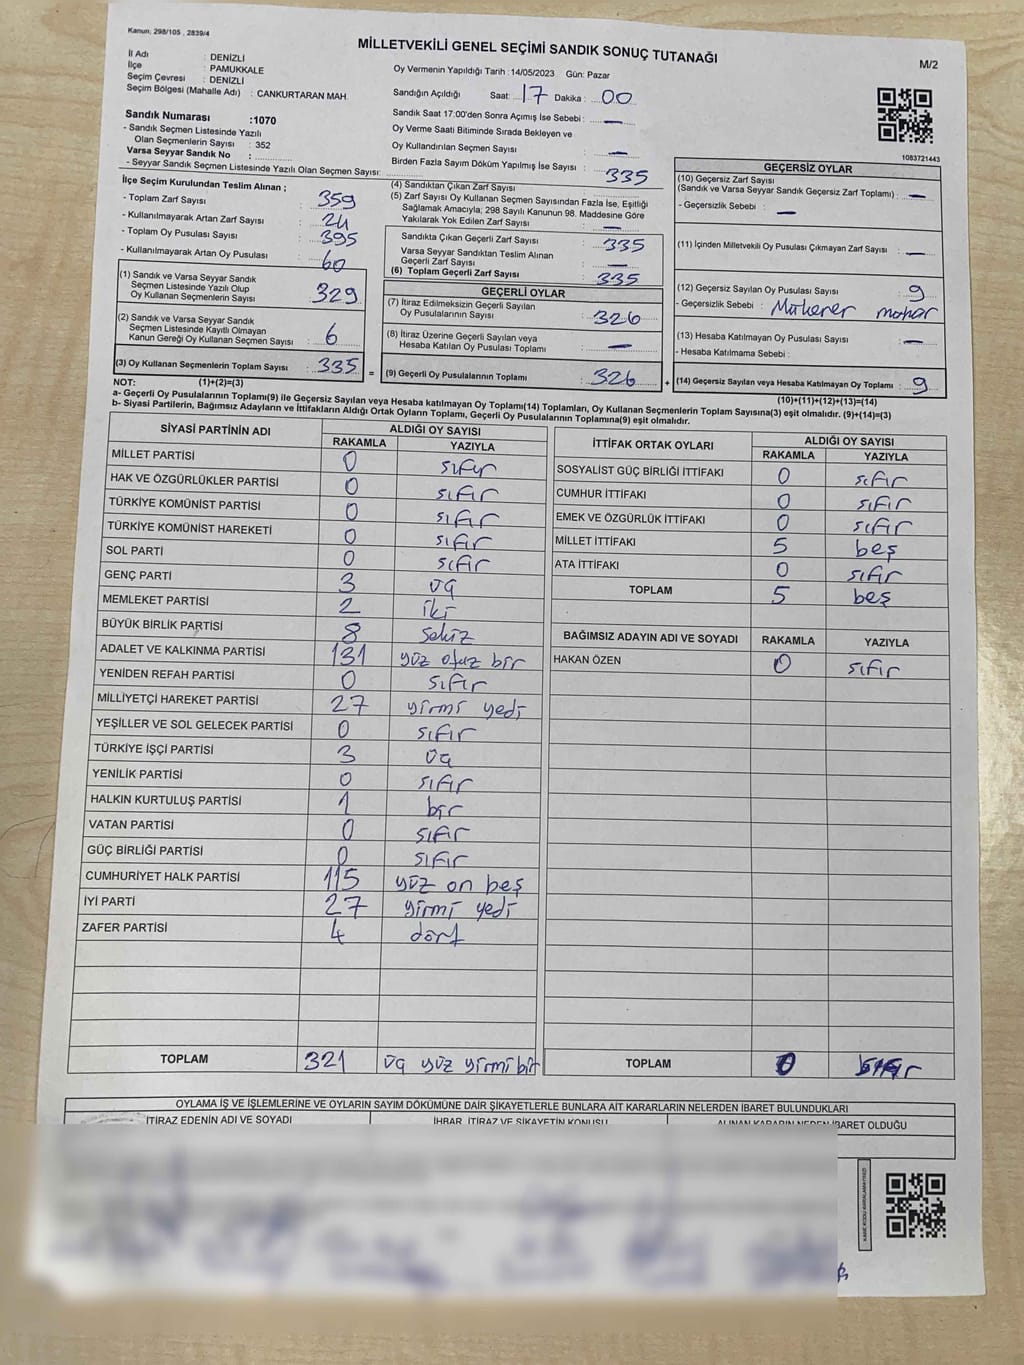 Kanun: 298/105 , 2839/4
MİLLETVEKİLİ GENEL SEÇİMİ SANDIK SONUÇ TUTANAĞI
M/2
İl Adı : DENİZLİ
İlçe : PAMUKKALE
Seçim Çevresi : DENİZLİ
Seçim Bölgesi (Mahalle Adı) : CANKURTARAN MAH.
Oy Vermenin Yapıldığı Tarih :14/05/2023 Gün: Pazar
Sandığın Açıldığı Saat: 17 Dakika : 00
Sandık Saat 17:00'den Sonra Açımış İse Sebebi : —
Oy Verme Saati Bitiminde Sırada Bekleyen ve
Oy Kullandırılan Seçmen Sayısı : —
Birden Fazla Sayım Döküm Yapılmış İse Sayısı :
Sandık Numarası :1070
- Sandık Seçmen Listesinde Yazılı
Olan Seçmenlerin Sayısı : 352
Varsa Seyyar Sandık No :
- Seyyar Sandık Seçmen Listesinde Yazılı Olan Seçmen Sayısı:
1083721443
İlçe Seçim Kurulundan Teslim Alınan ;
- Toplam Zarf Sayısı : 359
- Kullanılmayarak Artan Zarf Sayısı : 24
- Toplam Oy Pusulası Sayısı : 395
- Kullanılmayarak Artan Oy Pusulası : 60
(1) Sandık ve Varsa Seyyar Sandık
Seçmen Listesinde Yazılı Olup
Oy Kullanan Seçmenlerin Sayısı : 329
(2) Sandık ve Varsa Seyyar Sandık
Seçmen Listesinde Kayıtlı Olmayan
Kanun Gereği Oy Kullanan Seçmen Sayısı : 6
(3) Oy Kullanan Seçmenlerin Toplam Sayısı : 335
(4) Sandıktan Çıkan Zarf Sayısı : 335
(5) Zarf Sayısı Oy Kullanan Seçmen Sayısından Fazla İse, Eşitliği
Sağlamak Amacıyla; 298 Sayılı Kanunun 98. Maddesine Göre
Yakılarak Yok Edilen Zarf Sayısı : —
Sandıkta Çıkan Geçerli Zarf Sayısı : 335
Varsa Seyyar Sandıktan Teslim Alınan
Geçerli Zarf Sayısı : —
(6) Toplam Geçerli Zarf Sayısı : 335
GEÇERLİ OYLAR
(7) İtiraz Edilmeksizin Geçerli Sayılan
Oy Pusulalarının Sayısı : 326
(8) İtiraz Üzerine Geçerli Sayılan veya
Hesaba Katılan Oy Pusulası Toplamı : —
= (9) Geçerli Oy Pusulalarının Toplamı : 326
GEÇERSİZ OYLAR
(10) Geçersiz Zarf Sayısı
(Sandık ve Varsa Seyyar Sandık Geçersiz Zarf Toplamı) : —
- Geçersizlik Sebebi : —
(11) İçinden Milletvekili Oy Pusulası Çıkmayan Zarf Sayısı : —
(12) Geçersiz Sayılan Oy Pusulası Sayısı : 9
- Geçersizlik Sebebi :
(13) Hesaba Katılmayan Oy Sayısı : —
- Hesaba Katılmama Sebebi :
+ (14) Geçersiz Sayılan veya Hesaba Katılmayan Oy Toplamı : 9
NOT: (1)+(2)=(3)
(10)+(11)+(12)+(13)=(14)
a- Geçerli Oy Pusulalarının Toplamı(9) ile Geçersiz Sayılan veya Hesaba katılmayan Oy Toplamı(14) Toplamları, Oy Kullanan Seçmenlerin Toplam Sayısına(3) eşit olmalıdır. (9)+(14)=(3)
b- Siyasi Partilerin, Bağımsız Adayların ve İttifakların Aldığı Ortak Oyların Toplamı, Geçerli Oy Pusulalarının Toplamına(9) eşit olmalıdır.
SİYASİ PARTİNİN ADI ALDIĞI OY SAYISI
RAKAMLA YAZIYLA
MİLLET PARTİSİ 0 sıfır
HAK VE ÖZGÜRLÜKLER PARTİSİ 0 sıfır
TÜRKİYE KOMÜNİST PARTİSİ 0 sıfır
TÜRKİYE KOMÜNİST HAREKETİ 0 sıfır
SOL PARTİ 0 sıfır
GENÇ PARTİ 3 üç
MEMLEKET PARTİSİ 2 iki
BÜYÜK BİRLİK PARTİSİ 8 sekiz
ADALET VE KALKINMA PARTİSİ 131 yüz otuz bir
YENİDEN REFAH PARTİSİ 0 sıfır
MİLLİYETÇİ HAREKET PARTİSİ 27 yirmi yedi
YEŞİLLER VE SOL GELECEK PARTİSİ 0 sıfır
TÜRKİYE İŞÇİ PARTİSİ 3 üç
YENİLİK PARTİSİ 0 sıfır
HALKIN KURTULUŞ PARTİSİ 1 bir
VATAN PARTİSİ 0 sıfır
GÜÇ BİRLİĞİ PARTİSİ 0 sıfır
CUMHURİYET HALK PARTİSİ 115 yüz on beş
İYİ PARTİ 27 yirmi yedi
ZAFER PARTİSİ 4 dört
TOPLAM 321 üç yüz yirmi bir
İTTİFAK ORTAK OYLARI ALDIĞI OY SAYISI
RAKAMLA YAZIYLA
SOSYALİST GÜÇ BİRLİĞİ İTTİFAKI 0 sıfır
CUMHUR İTTİFAKI 0 sıfır
EMEK VE ÖZGÜRLÜK İTTİFAKI 0 sıfır
MİLLET İTTİFAKI 5 beş
ATA İTTİFAKI 0 sıfır
TOPLAM 5 beş
BAĞIMSIZ ADAYIN ADI VE SOYADI RAKAMLA YAZIYLA
HAKAN ÖZEN 0 sıfır
TOPLAM 0 sıfır
OYLAMA İŞ VE İŞLEMLERİNE VE OYLARIN SAYIM DÖKÜMÜNE DAİR ŞİKAYETLERLE BUNLARA AİT KARARLARIN NELERDEN İBARET BULUNDUKLARI
İTİRAZ EDENİN ADI VE SOYADI İHBAR, İTİRAZ VE ŞİKAYETİN KONUSU ALINAN KARARIN NEDEN İBARET OLDUĞU